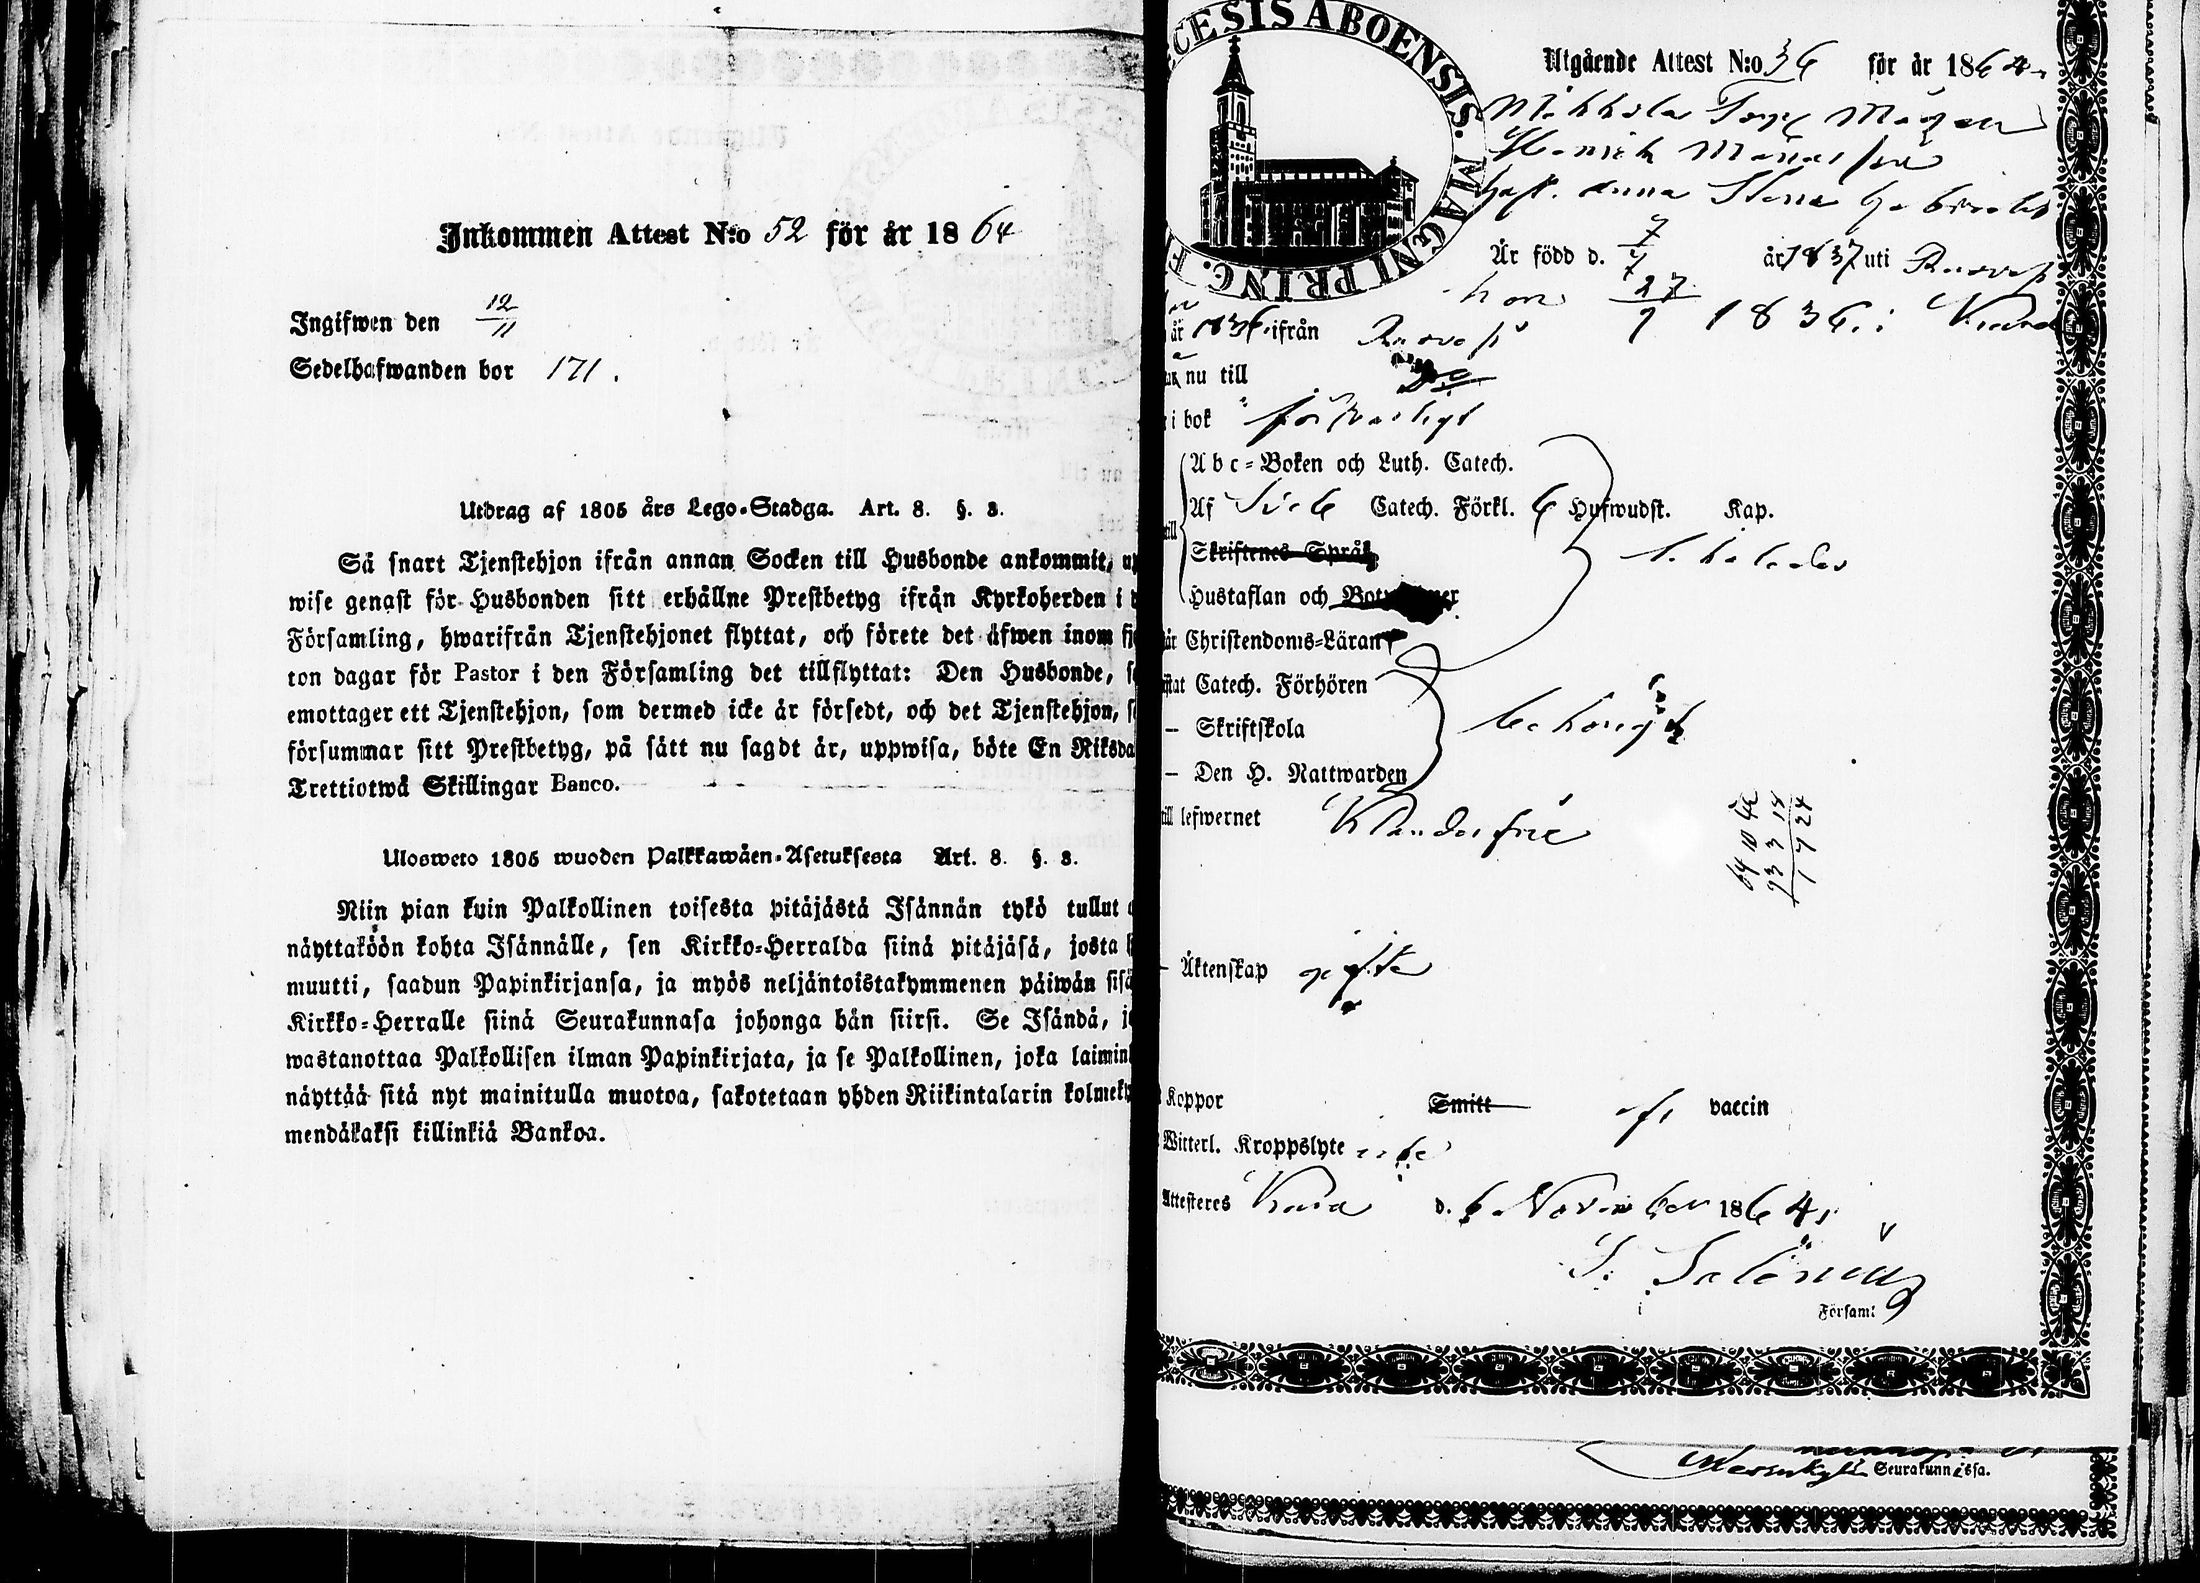 Inkommen Attest N:o 52 för år 1864
Ingifwen den 12/11
Sedelhafwanden bor 171.
Utdrag af 1805 års Lego-Stadga. Art. 8. §. 8.
Så snart Tjenstehjon ifrån annan Socken till Husbonde ankommit, up
wise genast för Husbonden sitt erhållne Prestbetyg ifrån Kyrkoherden i d
Församling, hwarifrån Tjenstehjonet flyttat, och förete det äfwen inom fj
ton dagar för Pastor i den Församling det tillflyttat: Den Husbonde, s
emottager ett Tjenstehjon, som dermed icke är försedt, och det Tjenstehjon, s
försummar sitt Prestbetyg, på sätt nu sagdt är, uppwisa, böte En Riksda
Trettiotwå Skillingar Banco.
Ulosweto 1805 wuoden Palkkawäen-Asetuksesta Art. 8. §. 8.
Niin pian kuin Palkollinen toisesta pitäjästä Isännän tykö tullut
näyttaköön kohta Isännälle, sen Kirkko-Herralda siinä pitäjäsä, josta h
muutti, saadun Papinkirjansa, ja myös neljäntoistakymmenen päiwän sisä
Kirkko-Herralle siinä Seurakunnasa johonga hän siirsi. Se Isändä, jo
wastanottaa Palkollisen ilman Papinkirjata, ja se Palkollinen, joka laimin
näyttää sitä nyt mainitulla muotoa, sakotetaan yhden Riikintalarin kolmeky
mendäkaksi killinkiä Bankoa.
CESIS ABOENSIS. MAGNI PRINC. F
Utgående Attest N:o 36 för år 1864
Torp
Henrik
hust. Anna Stena Gabriels
Är född d. 7 år 1837 uti
hon 27 1836 i
år 1836 ifrån
nu till
i bok försvarligt
Abc-Boken och Luth. Catech.
Af Catech. Förkl. 6 Hufwudst. Kap.
Skriftenes Språk
Hustaflan och
Christendoms-Läran
stat Catech. Förhören
– Skriftskola behörigt
– Den H. Nattwarden
till lefwernet klanderfrie
64 10 42
23 3 18
1 7 24
– Äktenskap gifte
Koppor Smitt af vaccin
Witterl. Kroppslyte icke
Attesteres d. 6 November 1864
Församl
Messukylä Seurakunnassa.